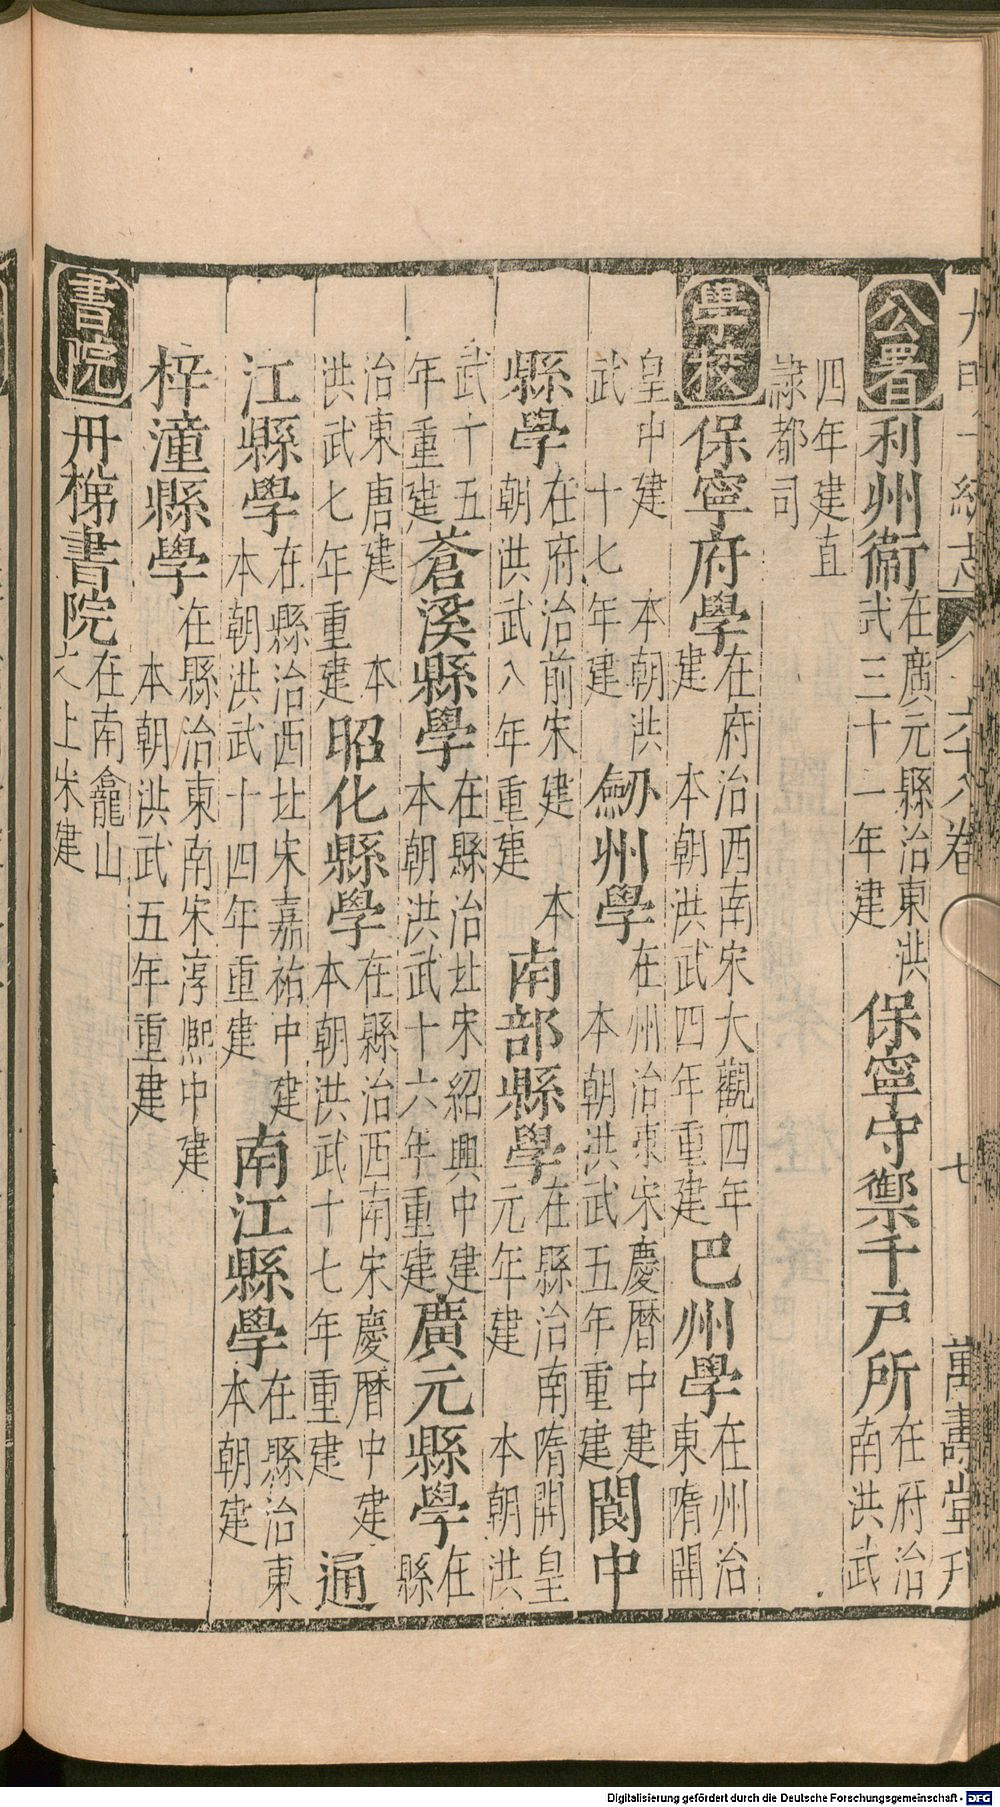 大明一統志 六十八卷 七 萬壽堂刊
公署 利州衛 在廣元縣治東洪武三十一年建 保寧守禦千戶所 在府治南洪武
四年建直隷都司
學校 保寧府學 在府治西南宋大觀四年建 本朝洪武四年重建 巴州學 在州治東隋開
皇中建 本朝洪武 十七年建 劒州學 在州治東宋慶曆中建 本朝洪武五年重建 閬中
縣學 在府治前宋建 本朝洪武八年重建 南部縣學 在縣治南隋開皇元年建 本朝洪
武十五年重建 蒼溪縣學 在縣治北宋紹興中建 本朝洪武十六年重建 廣元縣學 在縣
治東唐建 本洪武七年重建 昭化縣學 在縣治西南宋慶曆中建 本朝洪武十七年重建 通
江縣學 在縣治西北宋嘉祐中建 本朝洪武十四年重建 南江縣學 在縣治東本朝建
梓潼縣學 在縣治東南宋淳熙中建 本朝洪武五年重建
書院 丹梯書院 在南龕山之上宋建
Digitalisierung gefördert durch die Deutsche Forschungsgemeinschaft - DFG